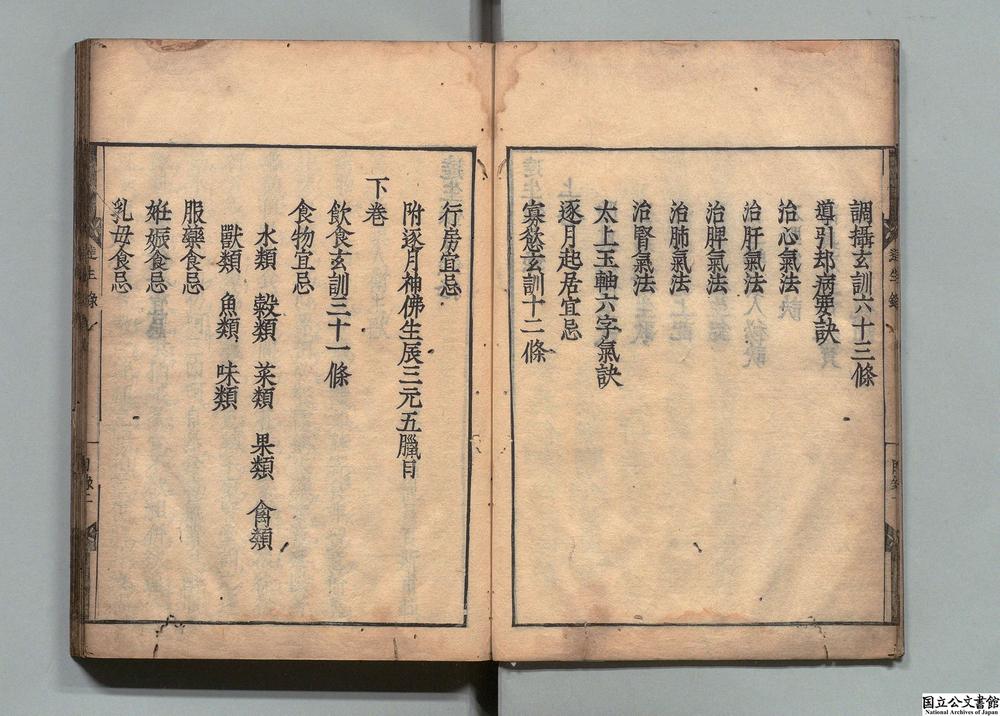 調攝玄訓六十三條
導引却病要訣
治心氣法
治肝氣法
治脾氣法
治肺氣法
治腎氣法
太上玉軸六字氣訣
逐月起居宜忌
寡慾玄訓十二條
行房宜忌
附逐月神佛生辰三元五臘日
下卷
飲食玄訓三十一條
食物宜忌
水類 穀類 菜類 果類 禽類
獸類 魚類 味類
服藥食忌
妊娠食忌
乳母食忌
達生錄
目錄一
達生錄
目錄二
国立公文書館
National Archives of Japan